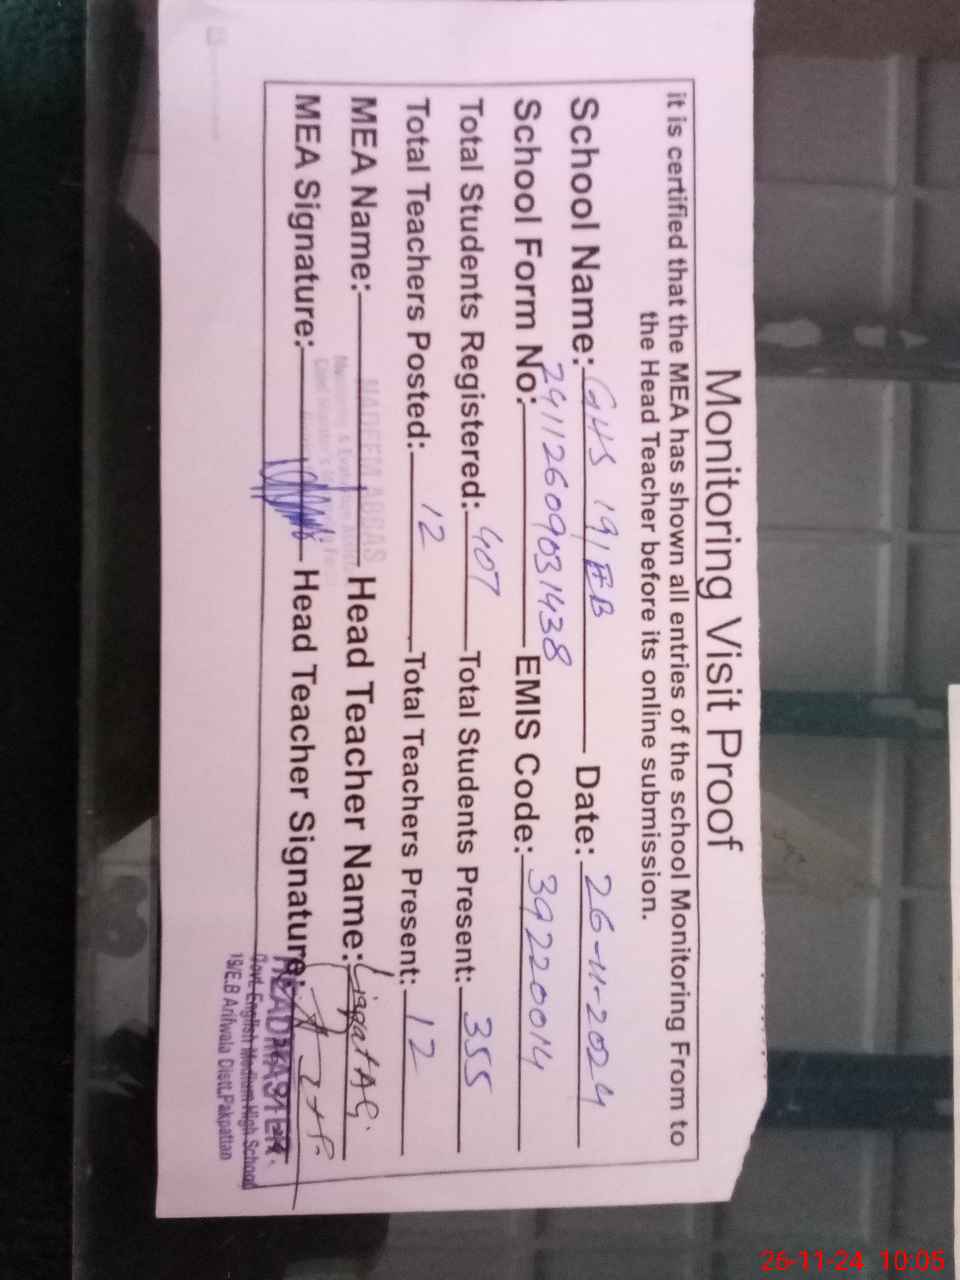 Monitoring Visit Proof
it is certified that the MEA has shown all entries of the school Monitoring From to
the Head Teacher before its online submission.
School Name: GHS 19/EB Date: 26-11-2024
School Form No: 24112609031438 EMIS Code: 39220014
Total Students Registered: 407 Total Students Present: 355
Total Teachers Posted: 12 Total Teachers Present: 12
MEA Name: NADEEM ABBAS Head Teacher Name: Liaqat Ali
Monitoring & Evaluation
MEA Signature: Head Teacher Signature:
HEADMASTER
Govt. English Medium High School
19/E.B Arifwala Distt.Pakpattan
26-11-24 10:05